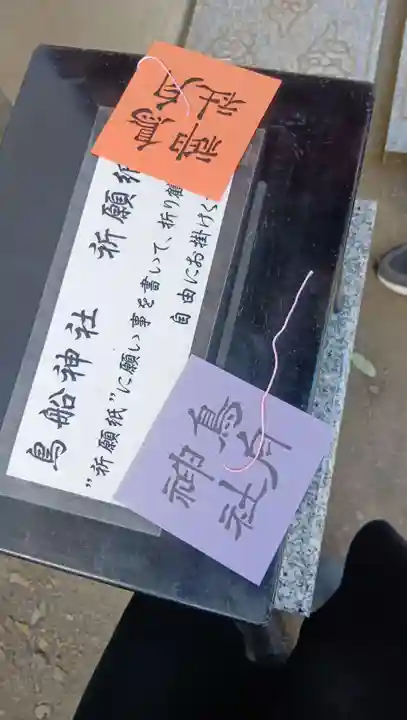 鳥船神社 祈願紙
"祈願紙"に願い事を書いて、折り鶴
自由にお掛けく
鳥舟
神社
鳥舟
神社